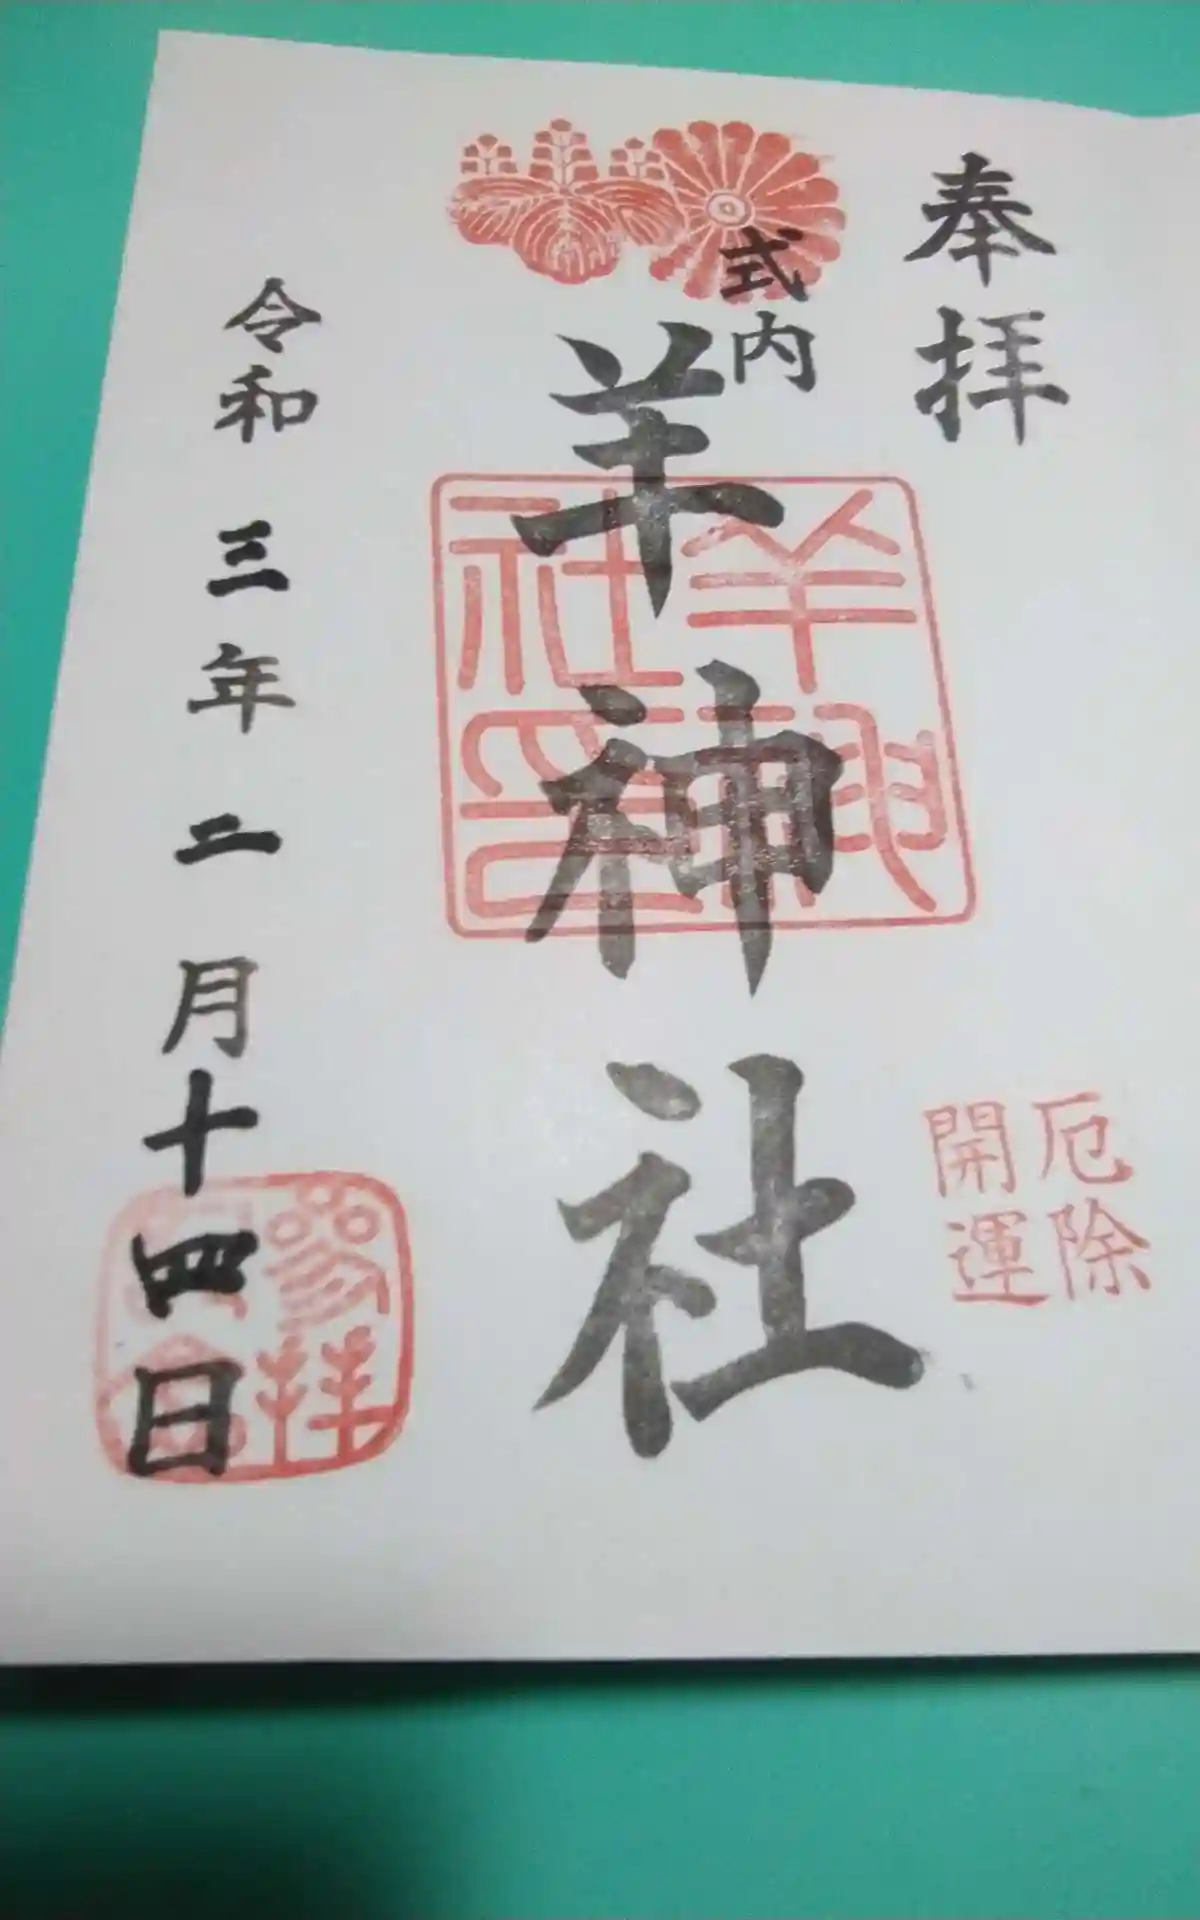 奉拝
厄除
開運
式内
羊神社
羊神社印
令和三年二月十四日
参拝